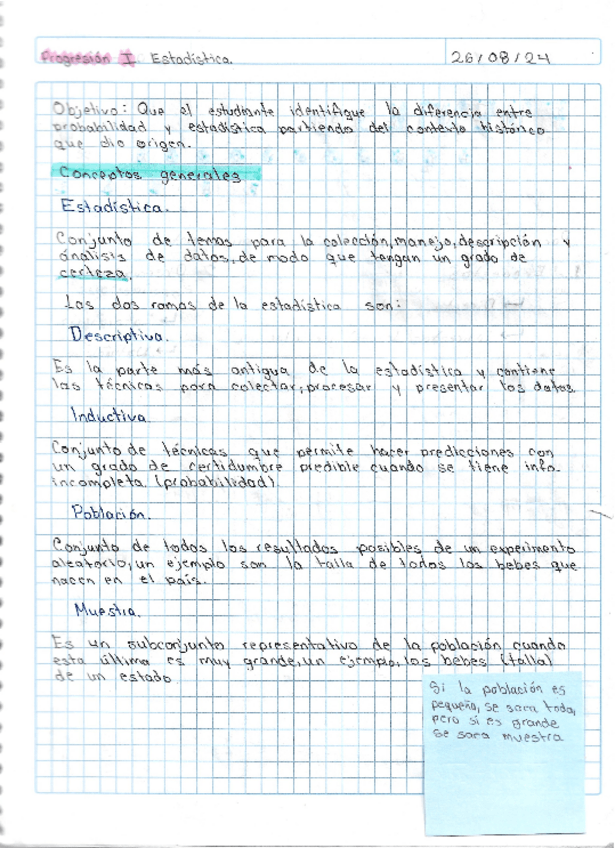 Progresión I Estadística. 26/08/24
Objetivo: Que el estudiante identifique la diferencia entre
probabilidad y estadística partiendo del contexto histórico
que dio origen.
Conceptos generales
Estadística.
Conjunto de temas para la colección, manejo, descripción y
análisis de datos, de modo que tengan un grado de
certeza.
Las dos ramas de la estadística son:
Descriptiva.
Es la parte más antigua de la estadística y contiene
las técnicas para colectar, procesar y presentar los datos
Inductiva
Conjunto de técnicas que permite hacer predicciones con
un grado de certidumbre predible cuando se tiene info.
incompleta (probabilidad)
Población.
Conjunto de todos los resultados posibles de un experimento
aleatorio, un ejemplo son la talla de todos los bebes que
nacen en el país.
Muestra.
Es un subconjunto representativo de la población cuando
esta última es muy grande, un ejemplo, los bebes (talla)
de un estado
Si la población es
pequeña, se saca toda,
pero si es grande
se saca muestra